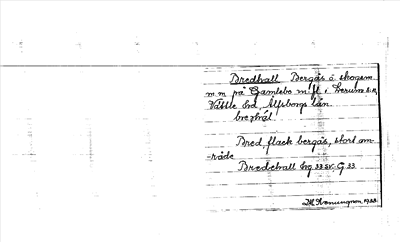 Bredhall Bergås o. skogsm.
m.m. på Gamlebo m.fl. i Lerums sn,
Vättle hd, Älfsborgs län.
bre̱hɑ̱l
Bred, flack bergås, stort om-
råde
Bredehall hg 33 SV. G 33.
1933.